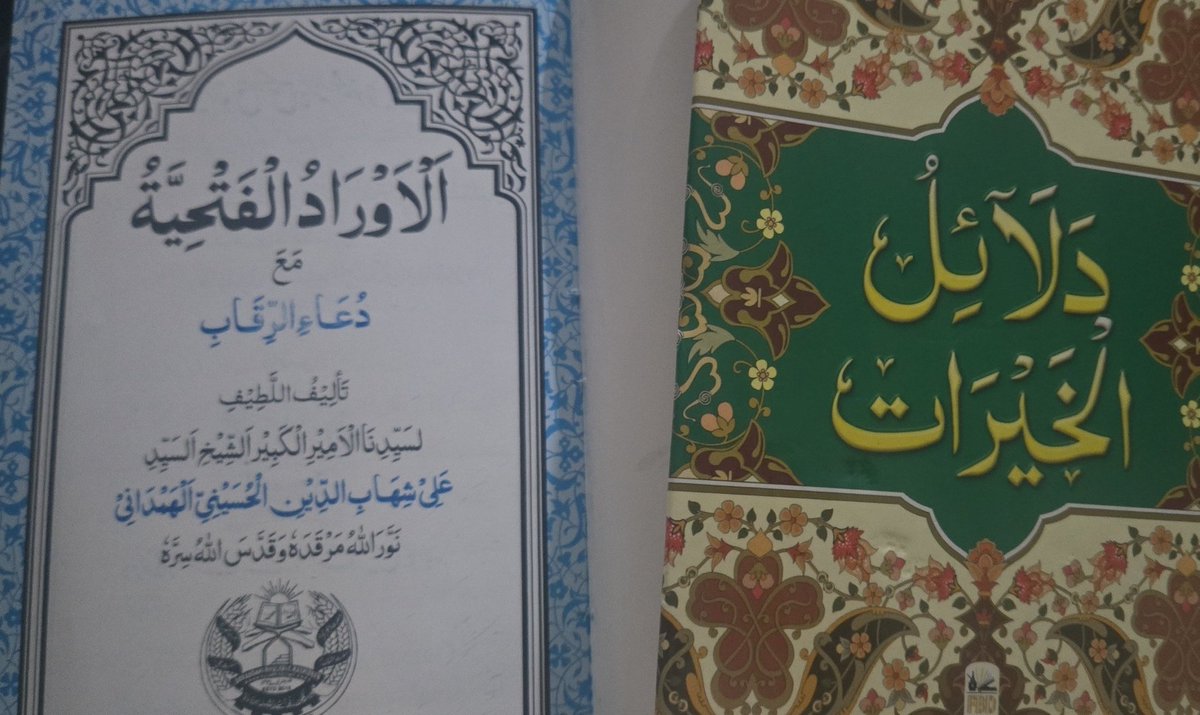 اَلْاَوْرَادُ الْفَتْحِيَّةُ
مَعَ
دُعَاءِ الرِّقَابِ
تَأْلِيْفُ اللَّطِيْفِ
لسَيِّدِنَا الْاَمِيْرِ الْكَبِيْرِ اَلشَّيْخِ اَلسَّيِّدِ
عَلِىْ شِهَابِ الدِّيْنِ الْحُسَيْنِيِّ اَلْهَمْدَانِىْ
نَوَّرَ اللهُ مَرْقَدَهٗ وَقَدَّسَ اللهُ سِرَّهٗ
دَلَآئِلُ
الْخَيْرَات